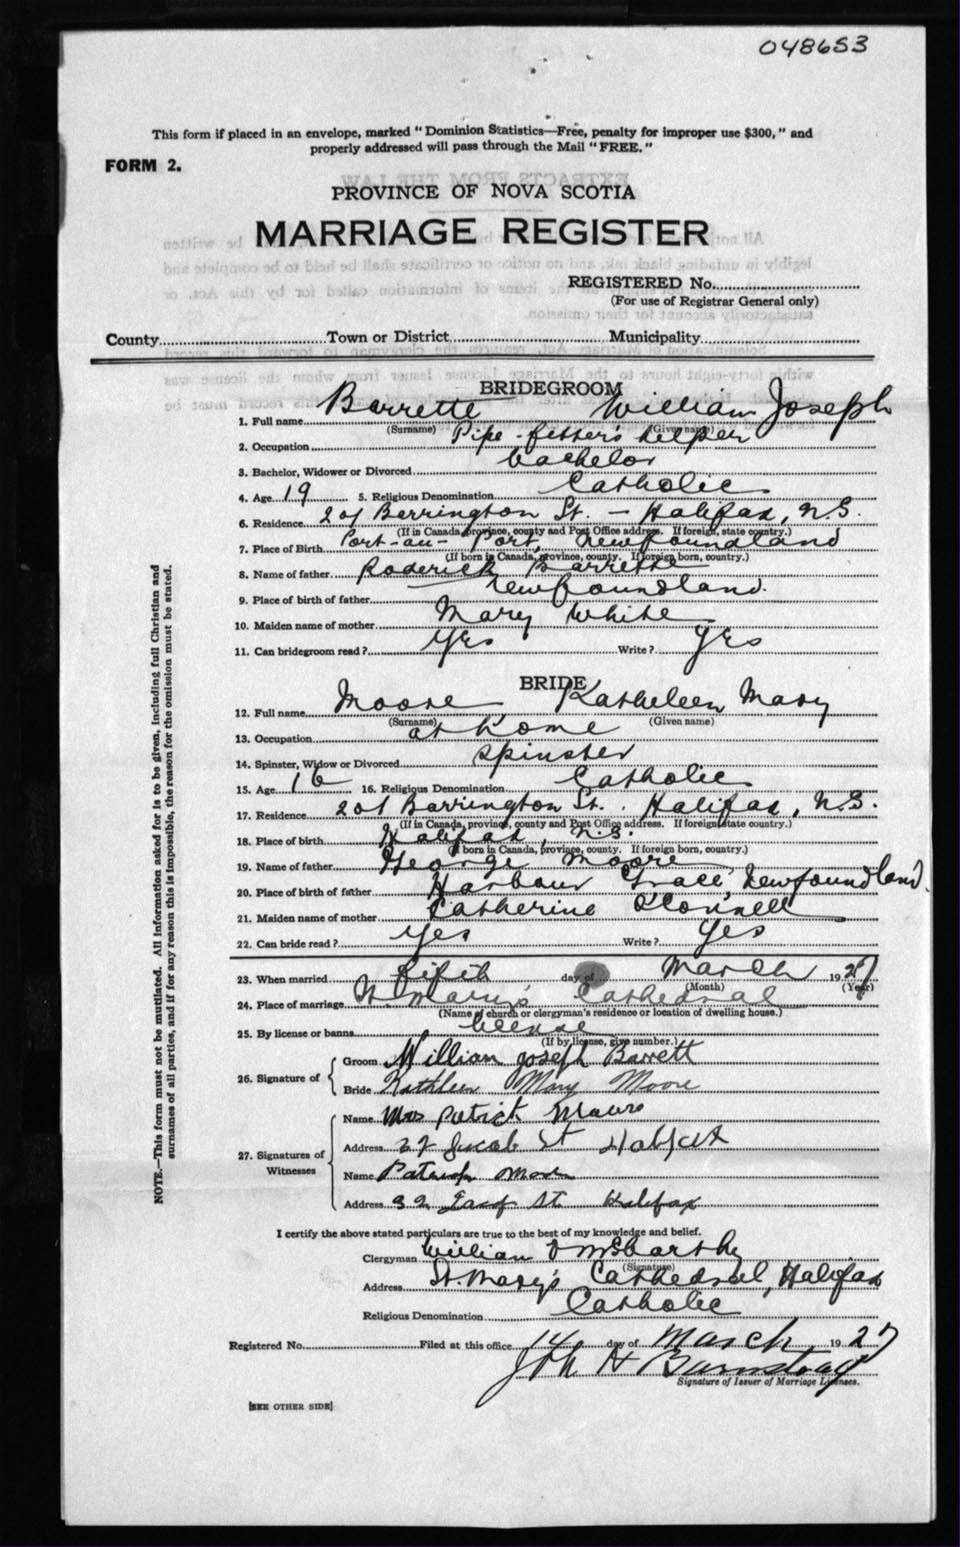 048653
This form if placed in an envelope, marked "Dominion Statistics—Free, penalty for improper use $300," and
properly addressed will pass through the Mail "FREE."
FORM 2.
PROVINCE OF NOVA SCOTIA
MARRIAGE REGISTER
REGISTERED No.
(For use of Registrar General only)
County Town or District Municipality
BRIDEGROOM
1. Full name Barrette William Joseph
(Surname) (Given name)
2. Occupation Pipe-fitter's helper
3. Bachelor, Widower or Divorced bachelor
4. Age 19 5. Religious Denomination Catholic
6. Residence 201 Barrington St. - Halifax, N.S.
(If in Canada, province, county and Post Office address. If foreign, state country.)
7. Place of Birth Port-au-Port, Newfoundland
(If born in Canada, province, county. If foreign born, country.)
8. Name of father Roderick Barrette
9. Place of birth of father Newfoundland.
10. Maiden name of mother Mary White
11. Can bridegroom read? Yes Write? Yes
BRIDE
12. Full name Moore Katheleen Mary
(Surname) (Given name)
13. Occupation at home
14. Spinster, Widow or Divorced Spinster
15. Age 16 16. Religious Denomination Catholic
17. Residence 201 Barrington St. Halifax, N.S.
(If in Canada, province, county and Post Office address. If foreign state country.)
18. Place of birth Halifax, N.S.
(If born in Canada, province, county. If foreign born, country.)
19. Name of father George Moore
20. Place of birth of father Harbour Grace, Newfoundland.
21. Maiden name of mother Catherine O'Connell
22. Can bride read? Yes Write? Yes
23. When married fifth day of March 1927
(Month) (Year)
24. Place of marriage St Mary's Cathedral
(Name of church or clergyman's residence or location of dwelling house.)
25. By license or banns license
(If by license, give number.)
26. Signature of
Groom William Joseph Barrett
Bride Kathleen Mary Moore
27. Signatures of Witnesses
Name Mrs Patrick
Address St Halifax
Name
Address 32 St Halifax
I certify the above stated particulars are true to the best of my knowledge and belief.
Clergyman William J McCarthy
(Signature)
Address St. Mary's Cathedral, Halifax
Religious Denomination Catholic
Registered No. Filed at this office 14 day of March 1927
H
Signature of Issuer of Marriage Licenses.
[SEE OTHER SIDE]
NOTE.—This form must not be mutilated. All information asked for is to be given, including full Christian and
surnames of all parties, and if for any reason this is impossible, the reason for the omission must be stated.